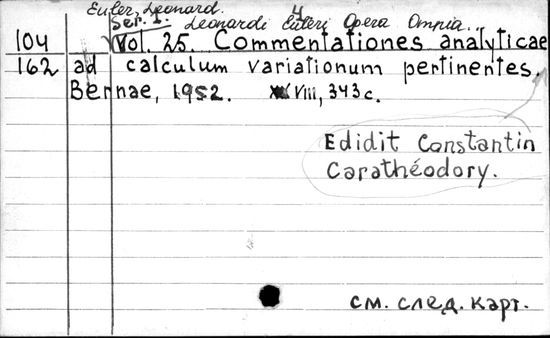 Euler, Leonard.
Ser. I. Leonardi Euleri Opera Omnia.
104 Vol. 25. Commentationes analyticae
162 ad calculum variationum pertinentes.
Bernae, 1952. VIII, 343 c.
Edidit Constantin
Carathéodory.
см. след. карт.